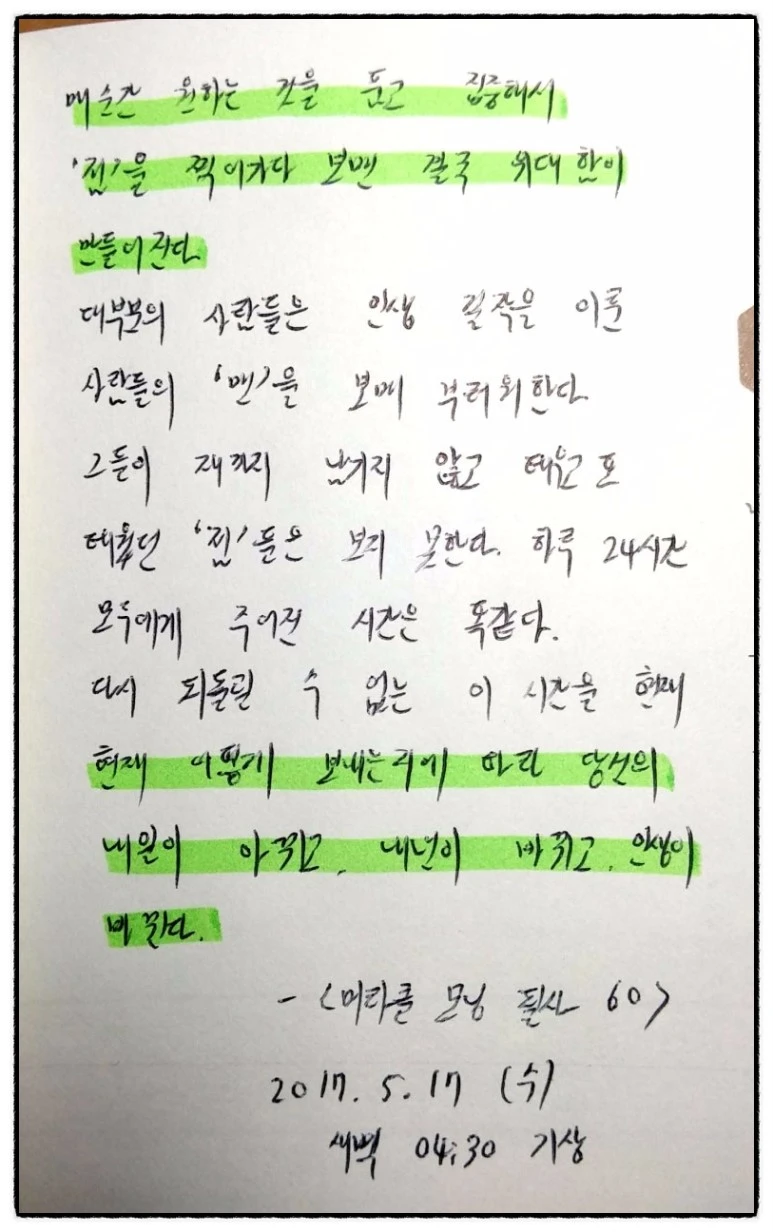 매순간 원하는 것을 듣고 집중해서
'점'을 찍어가다 보면 결국 위대함이
만들어진다.
대부분의 사람들은 인생 걸작을 이룬
사람들의 '면'을 보며 부러워한다.
그들이 재까지 남기지 않고 태우고 또
태웠던 '점'들은 보지 못한다. 하루 24시간
모두에게 주어진 시간은 똑같다.
다시 되돌릴 수 없는 이 시간을 현재
현재 어떻게 보내는지에 따라 당신의
내일이 바뀌고, 내년이 바뀌고, 인생이
바뀐다.
- <미라클 모닝 필사 60>
2017. 5. 17 (수)
새벽 04:30 기상